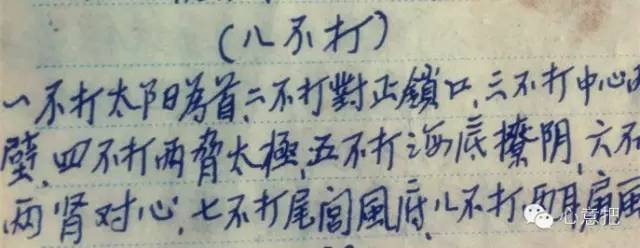 (八不打)
一不打太阳為首,二不打對正鎖口,三不打中心两
壁,四不打两脅太極,五不打海底撩阴,六不
两肾对心,七不打尾閭風府,八不打两耳扇風
心意把